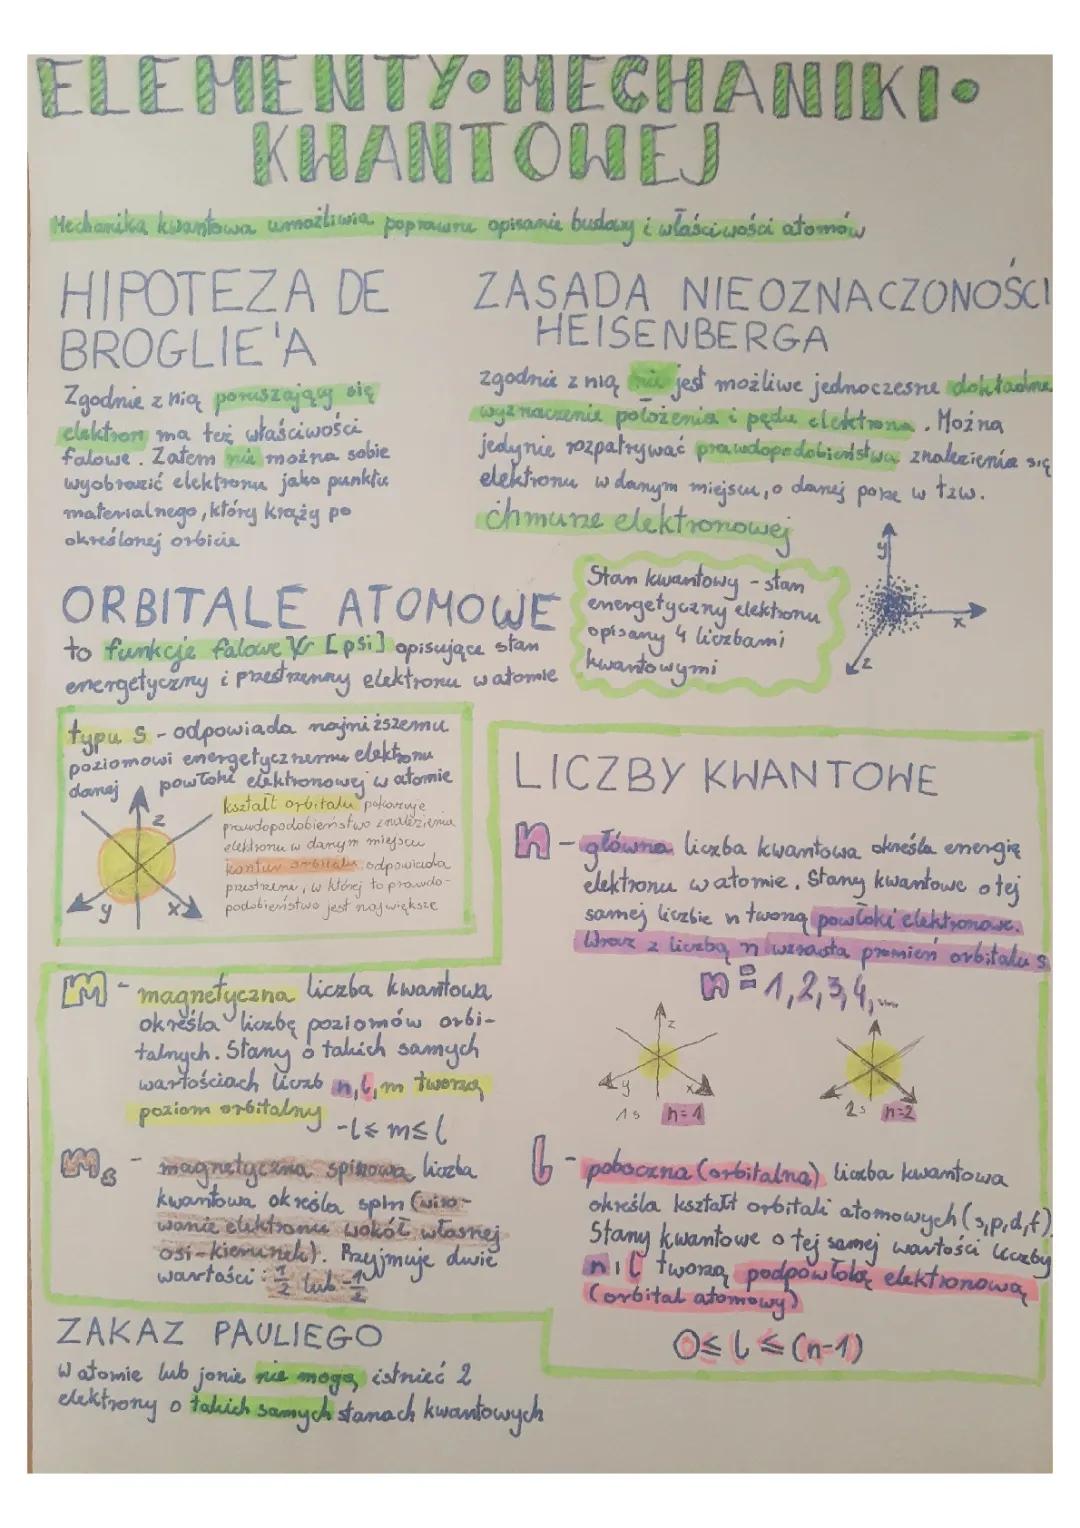 ELEMENTY•MECHANIKI•
KWANTOWEJ
Mechanika kwantowa umożliwia poprawne opisanie budowy i właściwości atomów
HIPOTEZA DE
BROGLIE'A
Zgodnie z nią poruszający się
elektron ma też właściwości
falowe. Zatem nie można sobie
wyobrazić elektronu jako punktu
materialnego, który krąży po
określonej orbicie
ZASADA NIEOZNACZONOŚCI
HEISENBERGA
zgodnie z nią nie jest możliwe jednoczesne dokładne
wyznaczenie położenia i pędu elektrona. Można
jedynie rozpatrywać prawdopodobieństwo znalezienia się
elektronu w danym miejscu, o danej porze w tzw.
chmurze elektronowej
y
x
z
Stan kwantowy - stan
energetyczny elektronu
opisany 4 liczbami
kwantowymi
ORBITALE ATOMOWE
to funkcje falowe Ψ [psi] opisujące stan
energetyczny i przestrzenny elektronu w atomie
typu s - odpowiada najniższemu
poziomowi energetycznemu elektronu
danej powłoki elektronowej w atomie
z
y
x
kształt orbitalu pokazuje
prawdopodobieństwo znalezienia
elektronu w danym miejscu
kontur orbitalu odpowiada
przestrzeni, w której to prawdo-
podobieństwo jest największe
LICZBY KWANTOWE
n - główna liczba kwantowa określa energię
elektronu w atomie. Stany kwantowe o tej
samej liczbie n tworzą powłoki elektronowe.
Wraz z liczbą n wzrasta promień orbitalu s
n = 1,2,3,4,....
z
y
x
1s n=1
2s n=2
m - magnetyczna liczba kwantowa
określa liczbę poziomów orbi-
talnych. Stany o takich samych
wartościach liczb n,l,m tworzą
poziom orbitalny
-l ≤ m ≤ l
ms - magnetyczna spinowa liczba
kwantowa określa spin (wiro-
wanie elektronu wokół własnej
osi-kierunek). Przyjmuje dwie
wartości: 1/2 lub -1/2
l - poboczna (orbitalna) liczba kwantowa
określa kształt orbitali atomowych (s,p,d,f).
Stany kwantowe o tej samej wartości liczby
n i l tworzą podpowłokę elektronową
(orbital atomowy)
0 ≤ l ≤ (n-1)
ZAKAZ PAULIEGO
W atomie lub jonie nie mogą istnieć 2
elektrony o takich samych stanach kwantowych